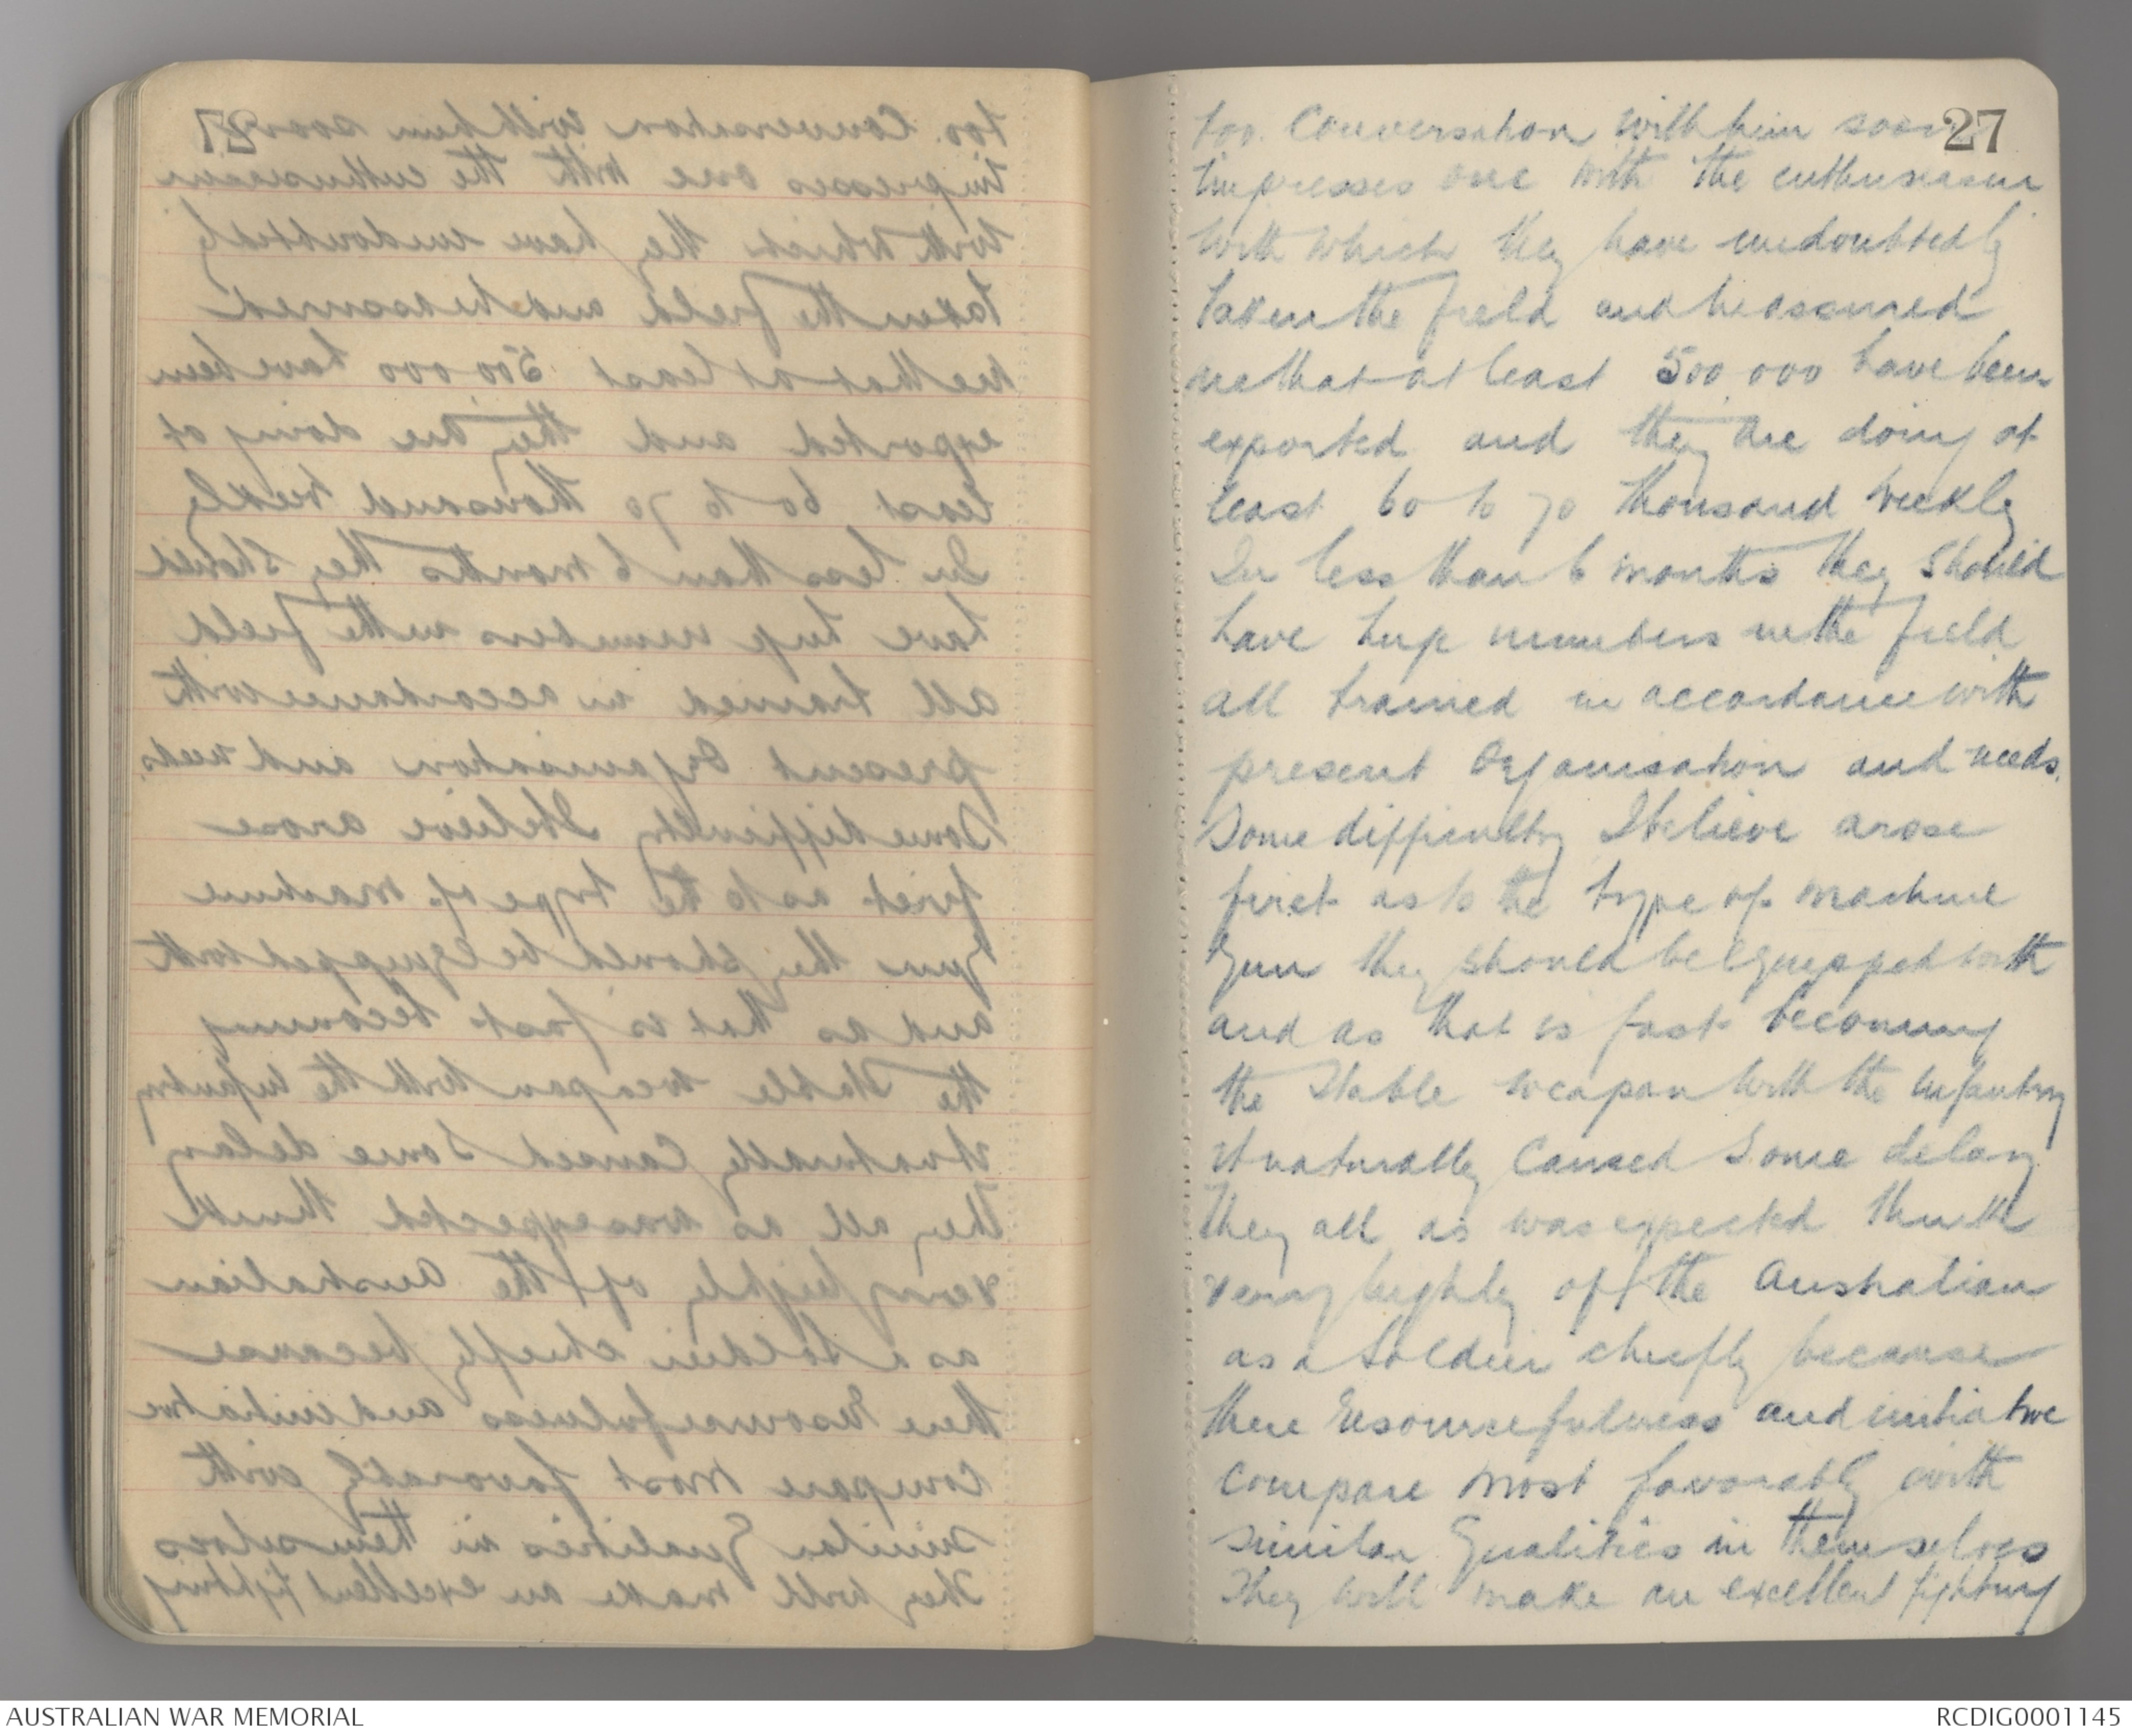 27
too. Conversation with him soon
impresses one with the enthusiasm
with which they have undoubtedly
taken the field and he assured
me that at least 500,000 have been
exported and they are doing at
least 60 to 70 thousand weekly
In less than 6 months they should
have huge numbers in the field
all trained in accordance with
present Organisation and needs.
Some difficulty I believe arose
first as to the type of machine
Gun they should be Equipped with
and as that is fast becoming
the Stable weapon with the infantry
it naturally Caused Some delay
They all as was expected think
very highly off the Australian
as a Soldier chiefly because
there resourcefulness and initiative
Compare most favorably with
similar Qualities in themselves
They will make an excellent fighting
AUSTRALIAN WAR MEMORIAL
RCDIG0001145